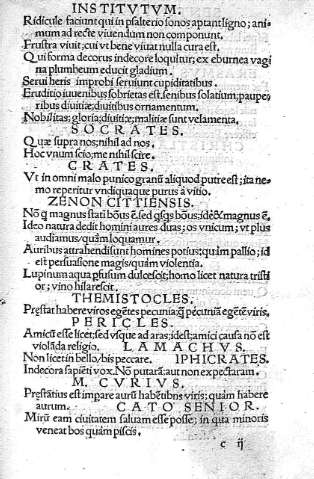 INSTITVTVM.
Ridicule faciunt qui in psalterio sonos aptant ligno; ani-
mum ad recte viuendum non componunt.
Frustra viuit, cui vt bene viuat nulla cura est.
Qui forma decorus indecore loquitur; ex eburnea vagi
na plumbeum educit gladium.
Serui heris improbi seruiunt cupiditatibus.
Eruditio iuuenibus sobrietas est. senibus solatium; paupe-
ribus diuitiæ; diuitibus ornamentum.
Nobilitas; gloria; diuitiæ; malitiæ sunt velamenta.
SOCRATES.
Quæ supra nos; nihil ad nos.
Hoc vnum scio; me nihil scire.
CRATES.
Vt in omni malo punico granũ aliquod putre est; ita ne-
mo reperitur vndiquaque purus á vitio.
ZENON CITTIENSIS.
Nõ q̃ magnus stati boũs ẽ. sed qsqs boũs: idẽ & magnus ẽ.
Ideo natura dedit homini aures duas; os vnicum; vt plus
audiamus quàm loquamur.
Auribus attrahendi sunt homines potius; quàm pallio; id
est persuasione magis quàm violentia.
Lupinum aqua pfusum dulcescit; homo licet natura tristi
or; vino hilarescit.
THEMISTOCLES.
Prestat habere viros egẽtes pecunia; q̃ pecuniã egẽtẽ viris,
PERICLES.
Amicũ esse licet; sed vsque ad aras; id est; amici causa nõ est
violãda religio. LAMACHVS.
Non licet in bello, bis peccare. IPHICRATES.
Indecora sapiẽti vox. Nõ putarã: aut non expectaram.
M. CVRIVS.
Prestãtius est impare aurũ habẽtibus viris; quàm habere
aurum. CATO SENIOR.
Mirũ eam ciuitatem saluam esse posse; in qua minoris
veneat bos quàm piscis.
c ij